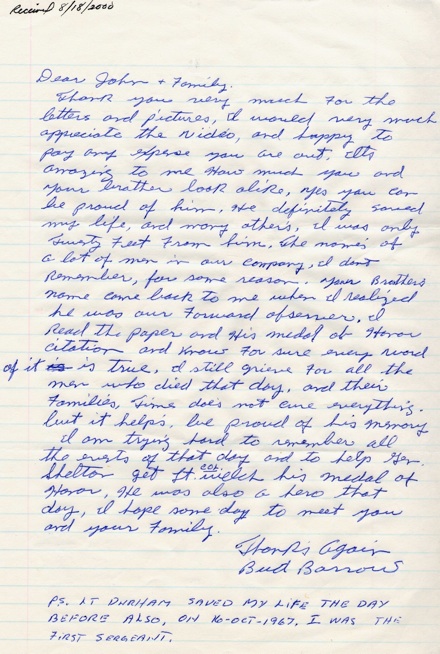 Received 8/18/2000
Dear John + Family.
Thank you very much For the
letters and pictures, I would very much
appreciate the Video, and happy to
pay any expense you are out, Its
amazing to me How much you and
your brother look alike, yes you can
be proud of him, He definitely saved
my life, and many others, I was only
Twenty Feet From him, The names of
a lot of men in our company, I dont
Remember, for some reason. your Brothers
name came back to me when I realized
he was our Forward observer, I
Read the paper and His medal of Honor
citation and Know For sure every word
of it is true, I still grieve For all the
men who died that day, and their
Families, Time does not cure everything.
but it helps, be proud of his memory
I am trying hard to remember all
the events of that day and to help Gen.
Shelton get Lt. Col. Welch his medal of
Honor, He was also a hero that
day, I hope some day to meet you
and your Family.
Thanks Again
Bud Barrow
PS. LT DURHAM SAVED MY LIFE THE DAY
BEFORE ALSO, ON 16-OCT-1967. I WAS THE
FIRST SERGEANT.